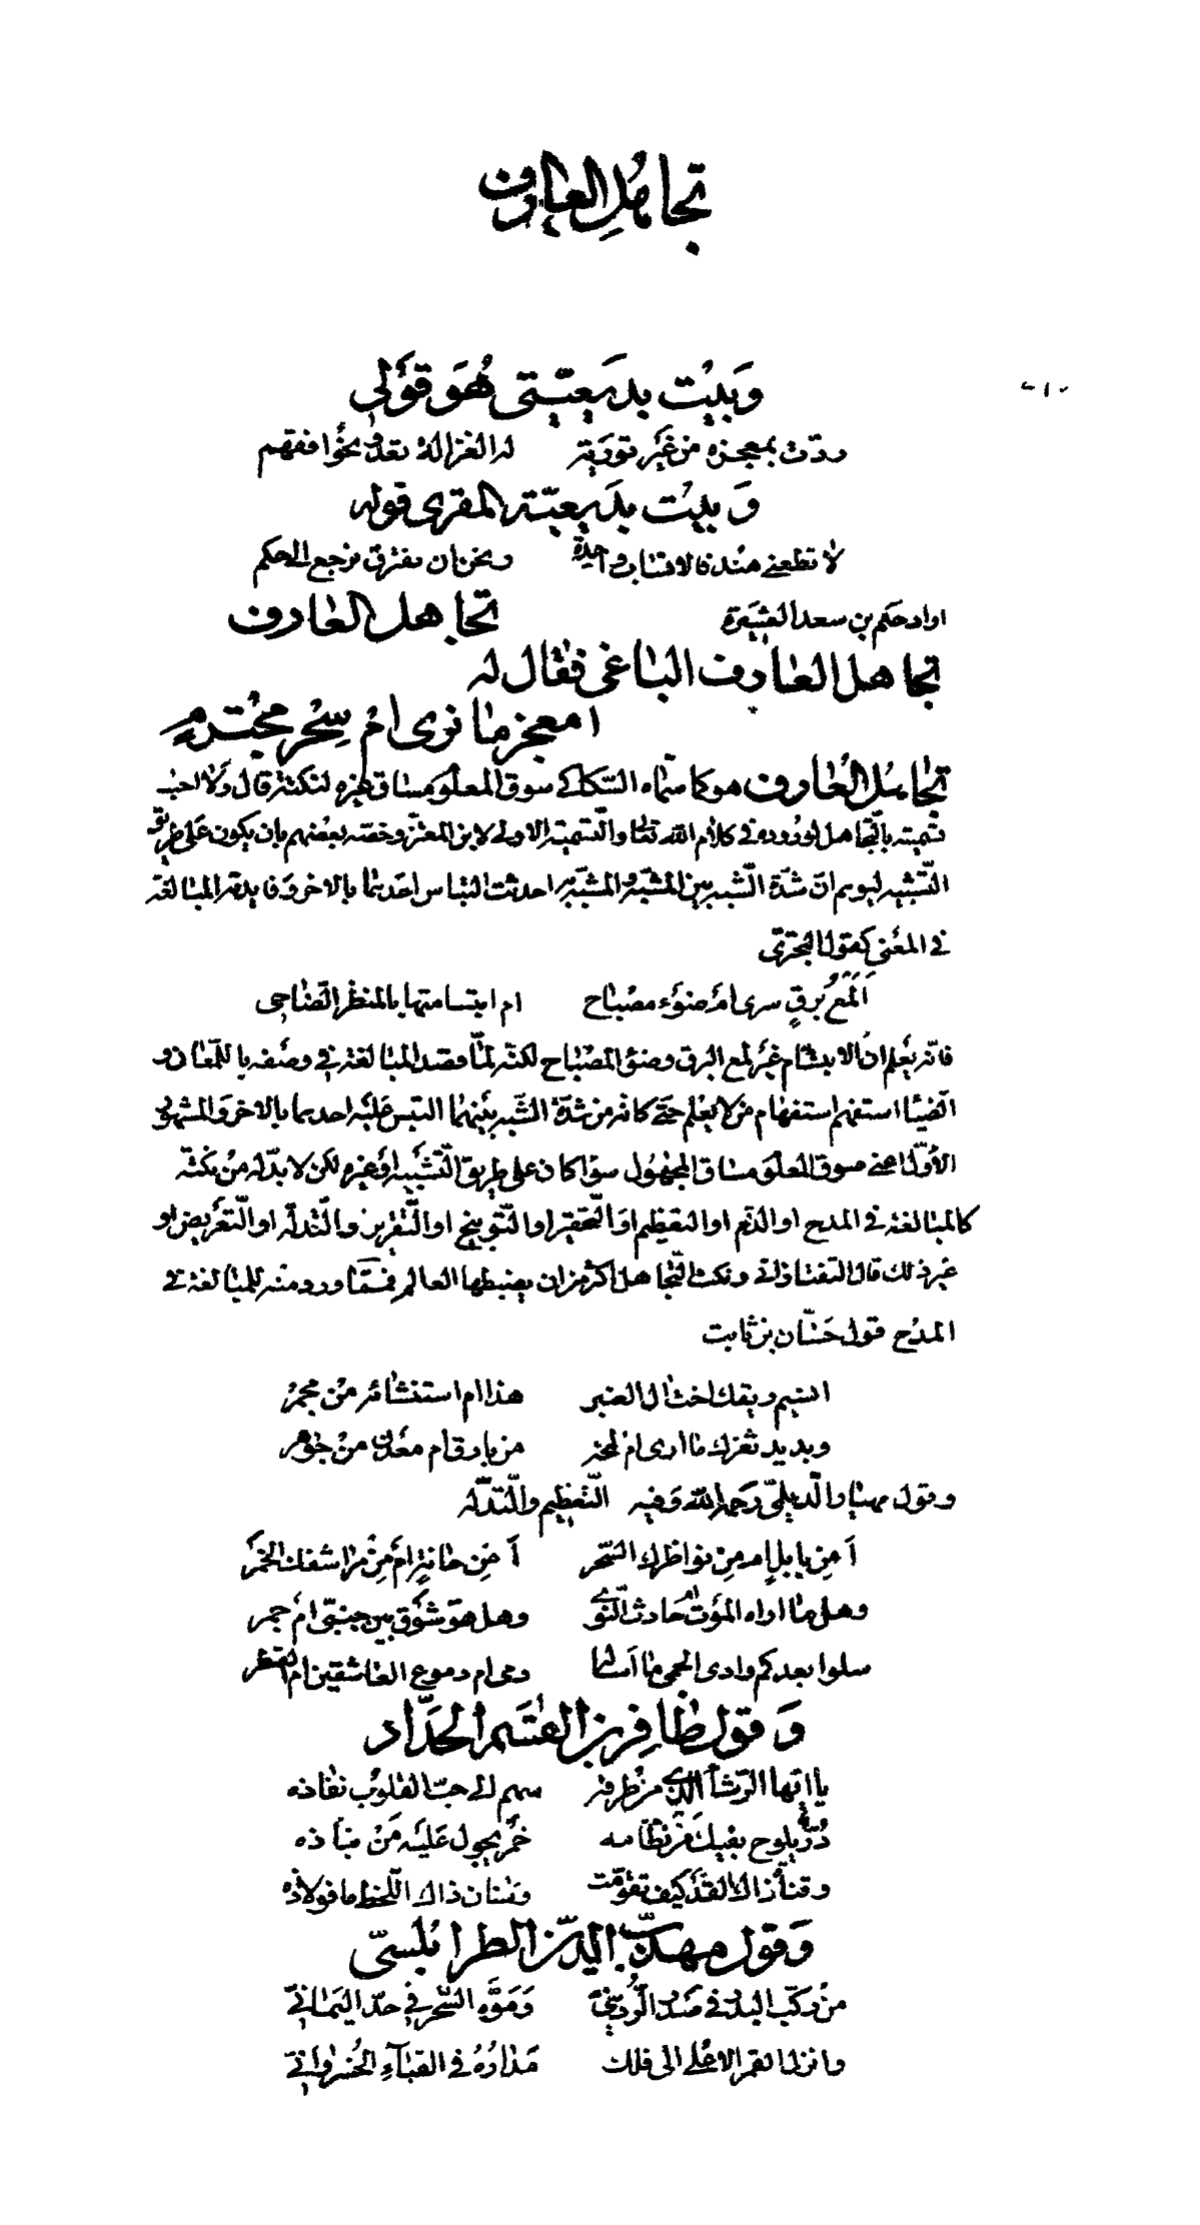 تجاهل العارف
٢١٠
وَبَيْت بديعيّتى هُوَ قوْلى
ردّت بمعجزه من غَيْر توريَة له الغزالة تعدو نحوا فقهم
وَبيْت بديعيّة المقرى قوله
لا تطعنى هند فالانساب واحدة ونحن ان نفترق نرجع الى حكم
اراد حكم بن سعد العشيَرة تجاهل العارف
تجاهل العارف الباغى فقال له
امعجز ما نرى امْ سِحْر مجْترم
تجاهُل العارف هو كما سمّاه السّكاكى سوق المعلوم مساق غيره لنكتة قال وَلا احب
تسميته بالتّجاهل لوروده فى كلام الله تعالى والتّسمية الاولى لابن المعتز وخصّه بعضهم بان يكون على طريق
التّشبيه ليوهم انّ شدّة الشّبه بين المشبّه والمشبّه به احدثت التباس احدهما بالاخر وَفايدته المبالغة
فى المعْنى كقول البحترى
اَلَمْعُ بَرقٍ سرى امْ ضوْء مصْباح ام ابتسامتها بالمنظر الضّاحى
فانّه يعْلم انّ الابتسام غَيْر لمع البرق وضوْ المصْباح لكنّه لمّا قصد المبالغة فى وصْفه باللّمعان و
الضّيا استفهم استفهام من لا يعْلم حتّى كانّه من شدّة الشّبه بيْنهما التبس عليْه احدهما بالاخر وَالمشهور
الاوّل اعنى سوق المعلوم مساق المجهُول سوا كان على طريق التّشْبيه اوْ غيره لكن لا بدّ له منْ نكتة
كالمبالغة فى المدح او الذم او التعظيم اوَالتّحقير او التّوبيخ او التّقرير والتّدلّه او التّعْريض او
غير ذلك قال التفتازانى ونكت التّجاهل اكثر من ان يضبطها العالم فممّا ورد منه للمبالغة فى
المدْح قول حَسّان بن ثابت
انسيم ريقك اخت ال العنبر هذا ام استنشائه منْ مجمرْ
وبديد ثغرك ما ارى امْ لمحة من بارق ام معْدن منْ جوْهر
وقول مهيار الدّيلمىّ رَحمه الله وَفيه التّعْظيم والتّدلّه
اَ مِن بابل ام مِن نواظرك السّحر اَ مِن حانةٍ امْ مِنْ مراشفك الخمْرَ
وهل ما اراه الموْت ام حادث النّوى وهل هو شوْق بين جنبىّ امْ جمر
سلوا بعدكم وادى الحمى ما اَسالنا دمى ام دموع العاشقين ام القطر
وَقول ظافِر بن القسَم الحَدّاد
يا ايّها الرّشأ الّذى من طرفه سهم الى حبّ القلوب نفاذه
دُرّ يلوح بفيك مَنْ نظّامه خمْر يجول عليْه مَنْ نبّاذه
وقناة ذاك القدّ كيف تقوّمت وسنان ذاك اللّحظ ما فولاذه
وَقول مهذّب الدّين الطرابُلسىّ
منْ ركّب البدْر فى صَدْر الرُّديْنىّ وَمَوَّه السّحْر فى حدّ اليَمانىّ
وانزل القمر الاعْلى الى فلك مَدارُهُ فى القبآءِ الخُسْروانىّ